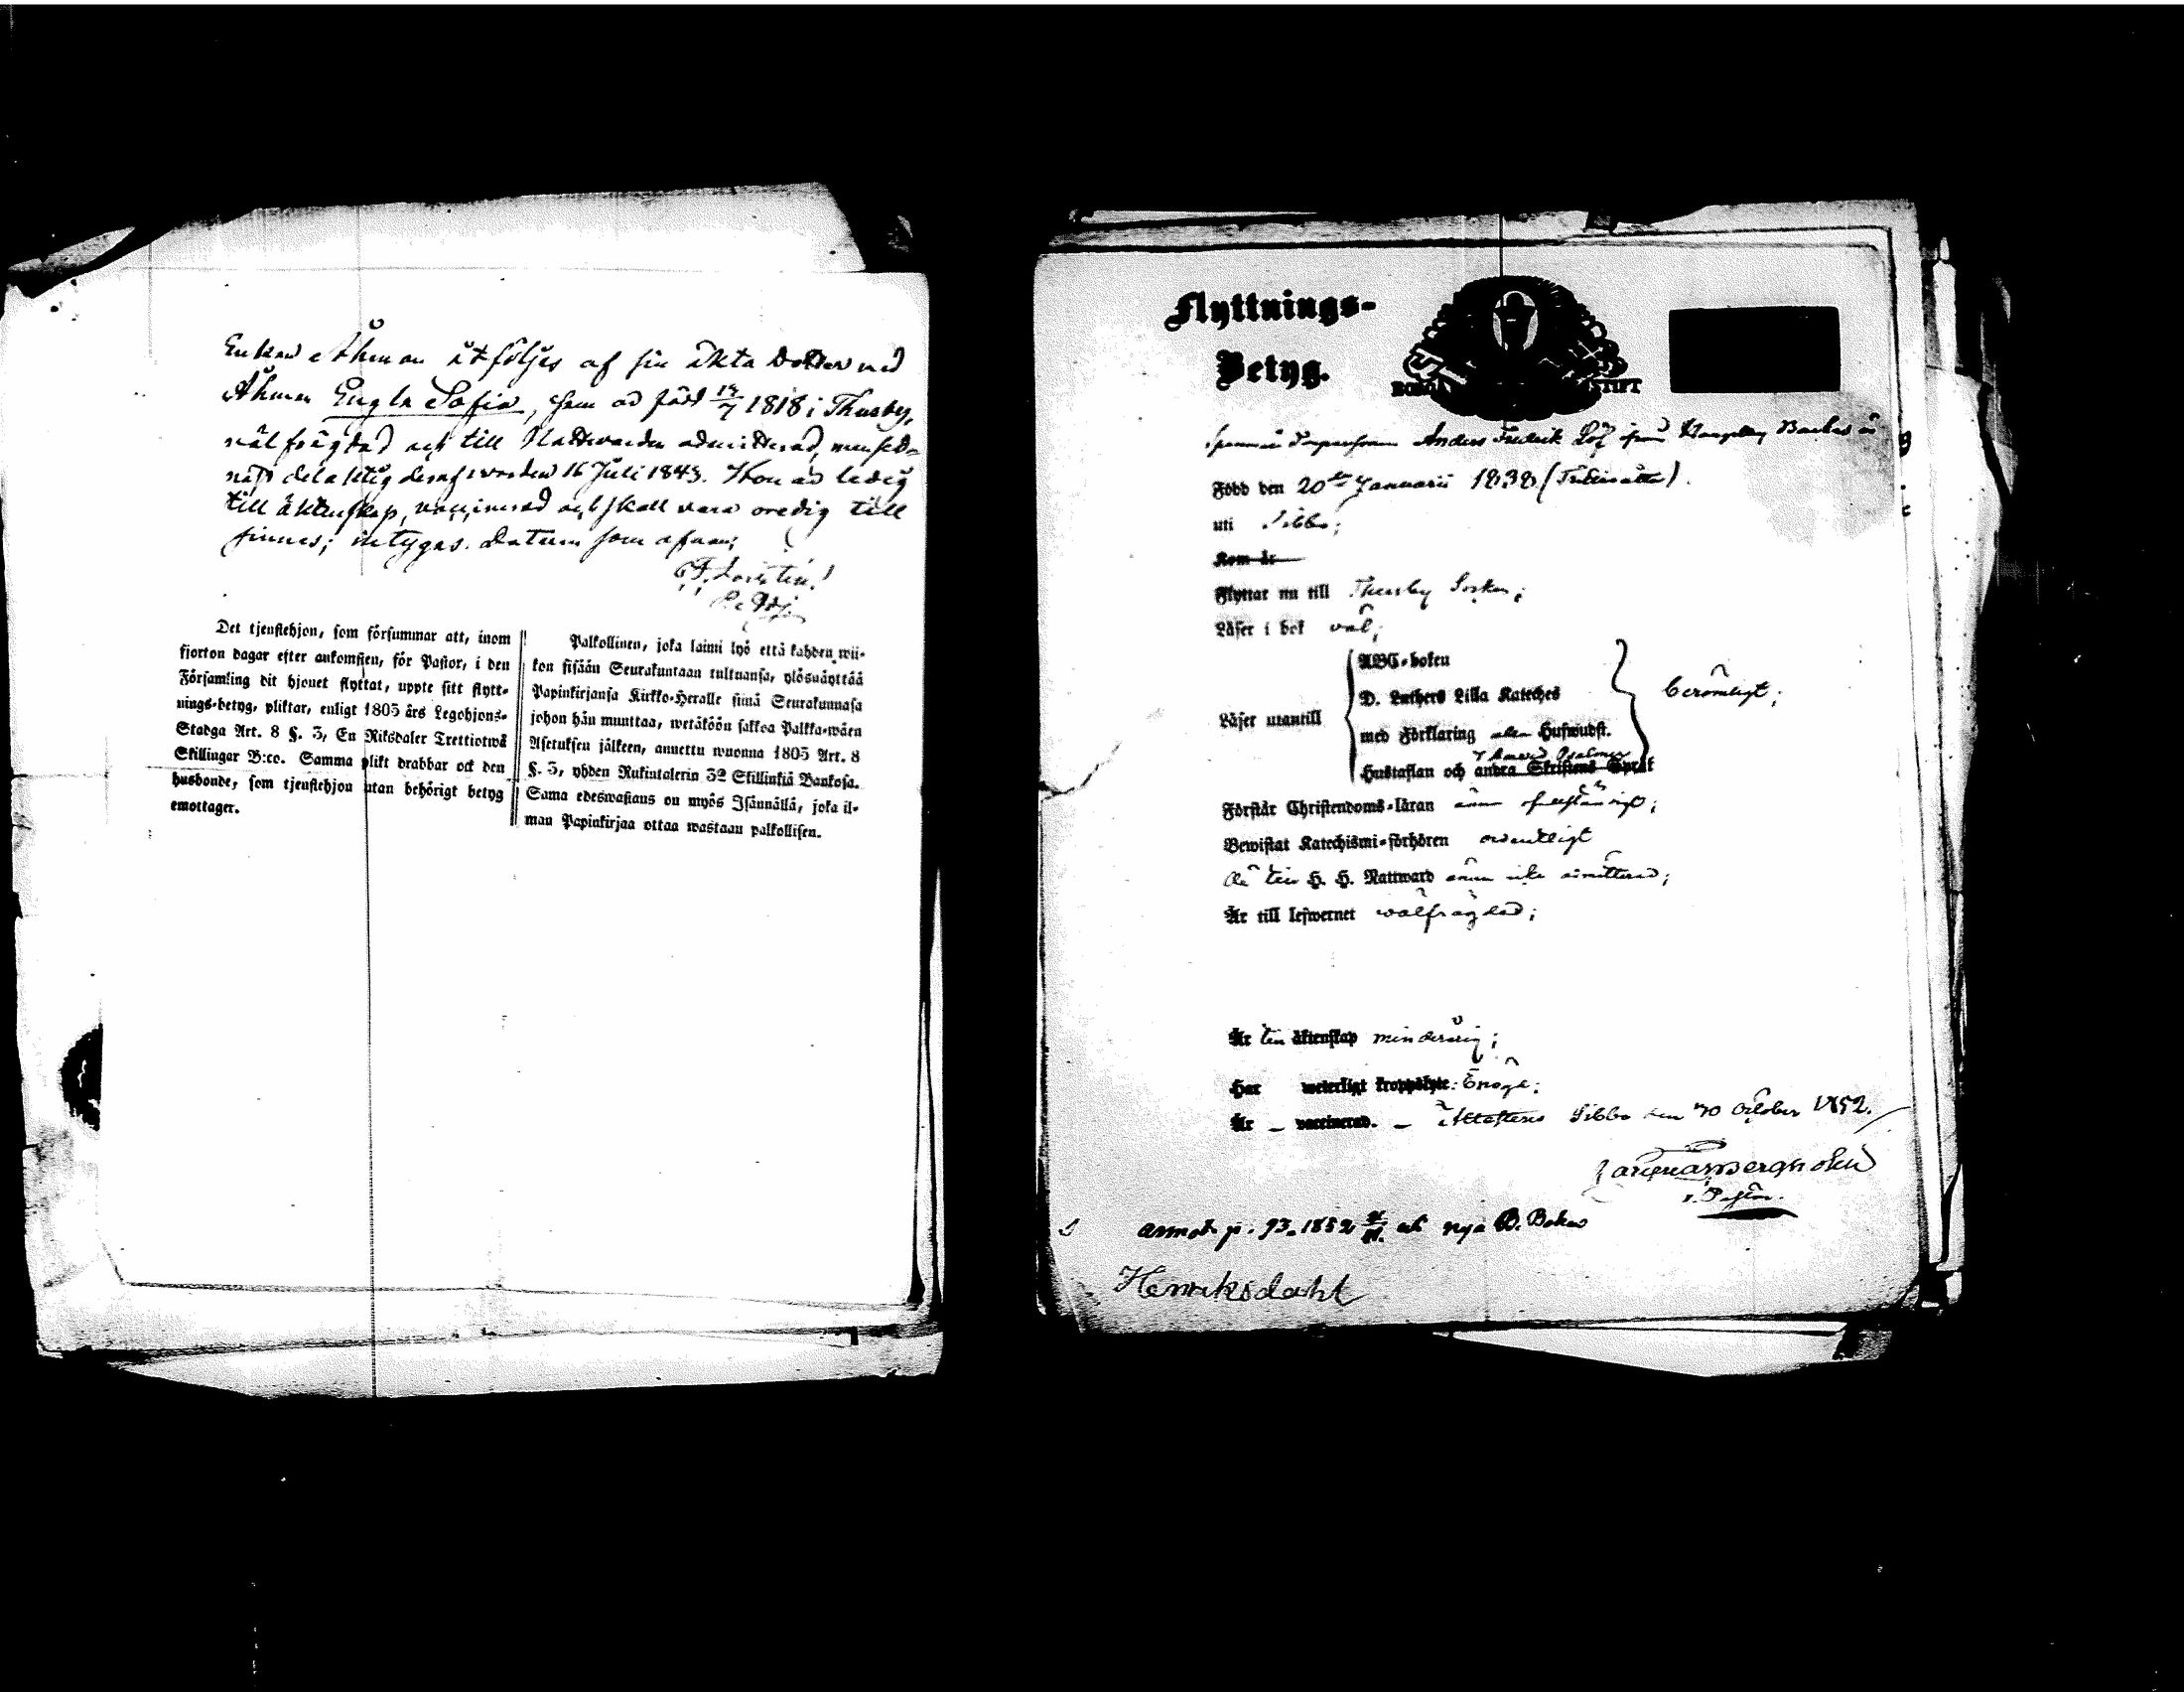 Enkan Åhman åtföljes af sin äkta Dotter med
Åhman Engla Sofia, som är född 14/7 1818 i Thusby,
välfrägdad och till Nattvarden admitterad, men sed-
nast delaktig deraf worden 16 Juli 1843. Hon är ledig
till äktenskap, vaccinerad och skall vara oredig till
sinnes; intygas. Datum som ofvan;
Det tjenstehjon, som försummar att, inom
fjorton dagar efter ankomsten, för Pastor, i den
Församling dit hjonet flyttat, uppte sitt flytt-
nings-betyg, pliktar, enligt 1805 års Legohjons-
Stadga Art. 8 §. 3, En Riksdaler Trettiotwå
Skillingar B:co. Samma plikt drabbar ock den
husbonde, som tjenstehjon utan behörigt betyg
emottager.
Palkollinen, joka laimi lyö että kahden wii-
kon sisään Seurakuntaan tultuansa, ylösnäyttää
Papinkirjansa Kirkko-Herralle siinä Seurakunnasa
johon hän muuttaa, wetäköön sakkoa Palkka-wäen
Asetuksen jälkeen, annettu wuonna 1805 Art. 8
§. 3, yhden Rukintalerin 32 Skillinkiä Bankosa.
Sama edeswastaus on myös Isännällä, joka il-
man Papinkirjaa ottaa wastaan palkollisen.
Flyttnings-
Betyg.
BORGÅ STIFT
Anders Fredrik Löf ifrån
Född den 20de Januarii 1838 (Trettioåtta).
uti Sibbo;
Kom år
Flyttar nu till Thusby Socken;
Läser i bok väl;
ABC-boken
D. Luthers Lilla Kateches
Läser utantill
med Förklaring Hufwudst.
berömligt;
Hustaflan och andra Skriftens Språk
Förstår Christendoms-läran ännu ofullständigt;
Bewistat Katechismi-förhören ordentligt
till H. H. Nattward ännu icke admitterad;
Är till lefwernet wälfrägdad;
Är till äktenskap minderårig;
Har weterligt kroppslyte: Enögd;
Är – vaccinerad. – Attesteras Sibbo den 30 October 1852.
v. Pastor.
annot. p. 93. 1852 uti nya B. Boken
Henriksdahl